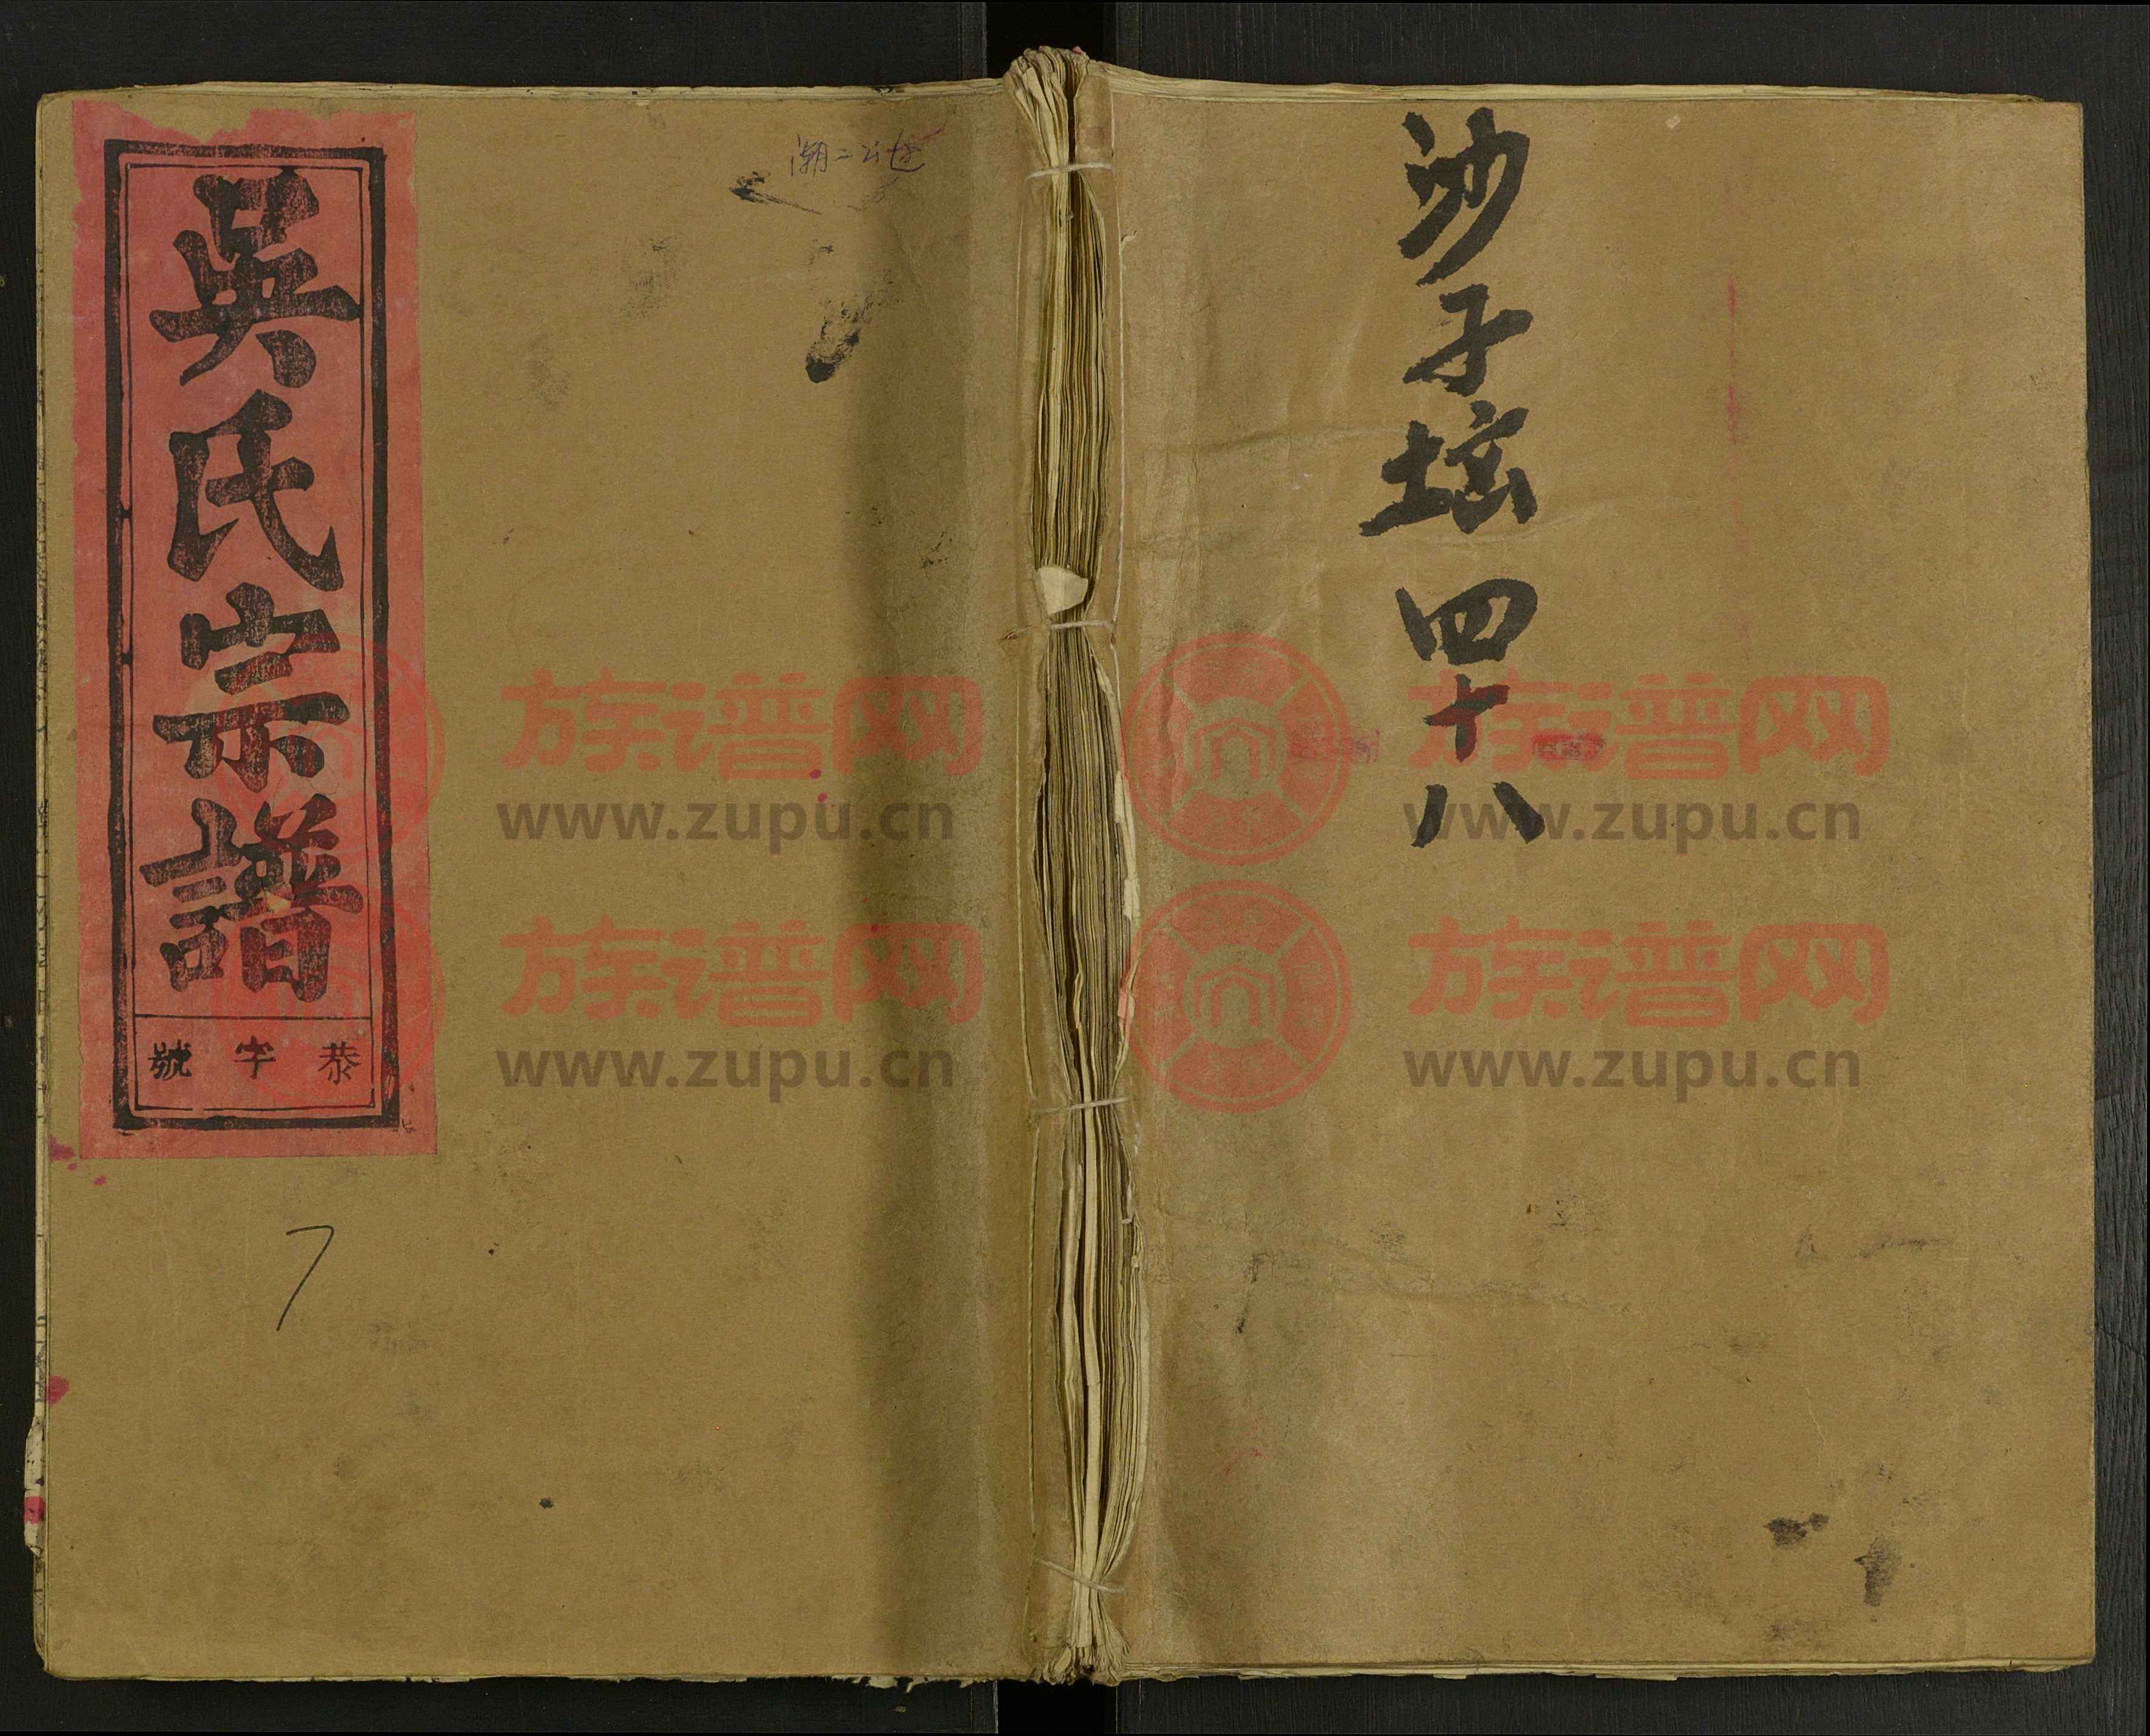 吳氏宗譜
恭字號
7
潮二公世
沙子壋
四十八
族谱网
www.zupu.cn
族谱网
www.zupu.cn
族谱网
www.zupu.cn
族谱网
www.zupu.cn